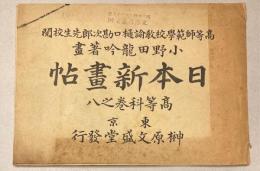 高等師範學校教諭樋口勘次郎先生校閲
小野田龍吟著畫
日本新畫帖
高等科巻之八
東京
榊原文盛堂發行